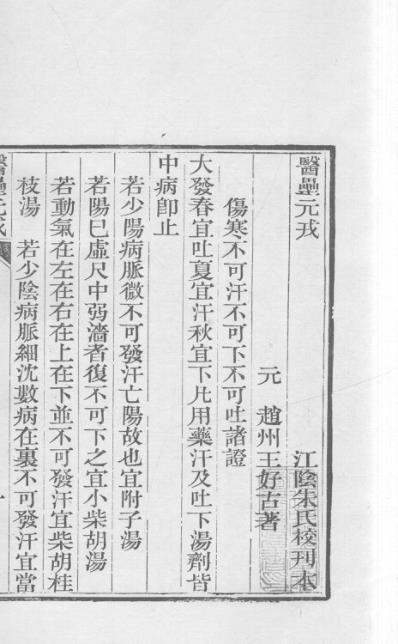 醫壘元戎
江陰朱氏校刊本
元 趙州王好古著
傷寒不可汗不可下不可吐諸證
大發春宜吐夏宜汗秋宜下凡用藥汗及吐下湯劑皆
中病卽止
若少陽病脈微不可發汗亡陽故也宜附子湯
若陽已虛尺中弱濇者復不可下之宜小柴胡湯
若動氣在左在右在上在下並不可發汗宜柴胡桂
枝湯 若少陰病脈細沈數病在裏不可發汗宜當
醫壘元戎